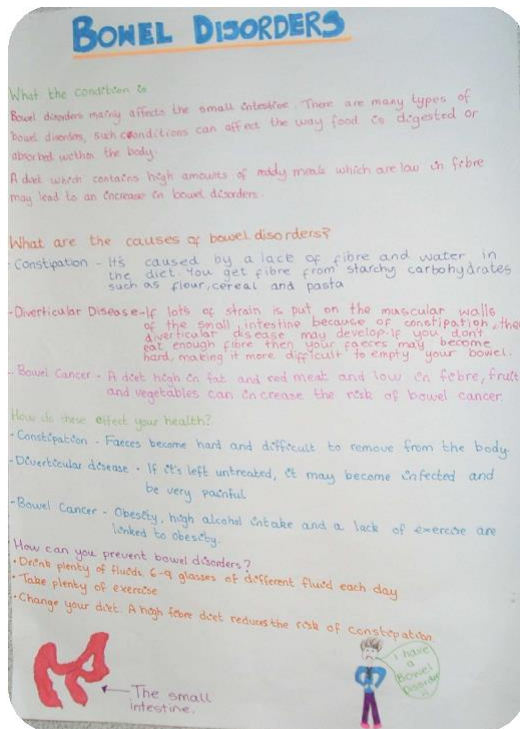 BOWEL DISORDERS
What the condition is
Bowel disorders mainly affects the small intestine. There are many types of
bowel disorders, such conditions can affect the way food is digested or
absorbed within the body.
A diet which contains high amounts of ready meals which are low in fibre
may lead to an increase in bowel disorders.
What are the causes of bowel disorders?
- Constipation - It's caused by a lack of fibre and water in
the diet. You get fibre from starchy carbohydrates
such as flour, cereal and pasta
- Diverticular Disease - If lots of strain is put on the muscular walls
of the small intestine because of constipation, then
diverticular disease may develop. If you don't
eat enough fibre then your faeces may become
hard, making it more difficult to empty your bowel.
- Bowel Cancer - A diet high in fat and red meat and low in fibre, fruit
and vegetables can increase the risk of bowel cancer
How do these effect your health?
- Constipation - Faeces become hard and difficult to remove from the body.
- Diverticular disease - If it's left untreated, it may become infected and
be very painful
- Bowel Cancer - Obesity, high alcohol intake and a lack of exercise are
linked to obesity.
How can you prevent bowel disorders?
• Drink plenty of fluids 6-9 glasses of different fluid each day
• Take plenty of exercise
• Change your diet. A high fibre diet reduces the risk of constipation.
The small
intestine.
I have
a
Bowel
Disorder